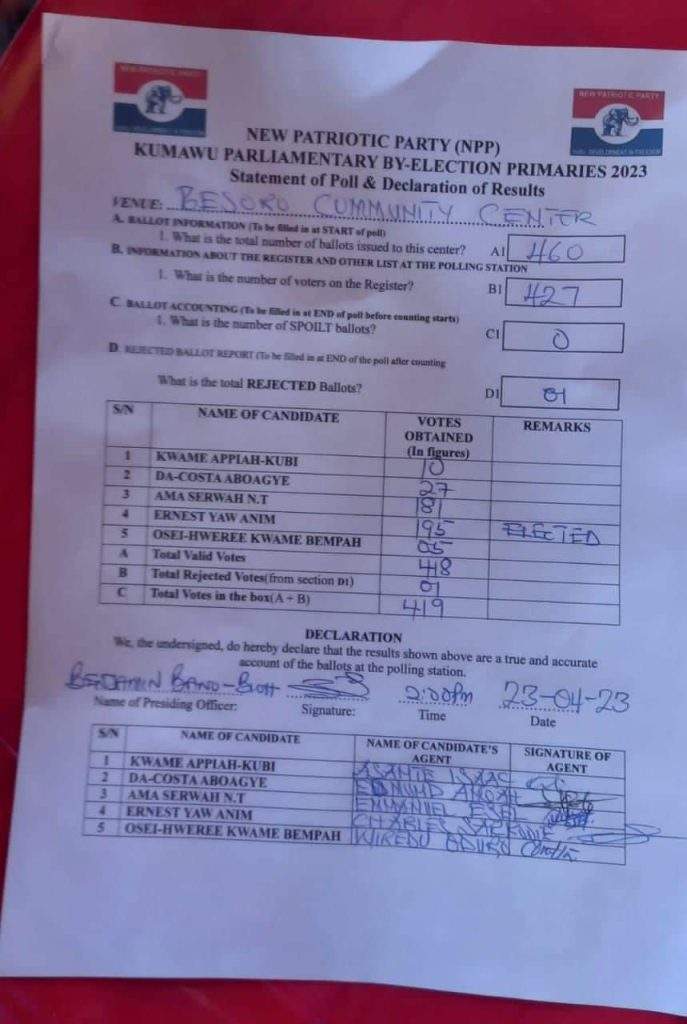 NEW PATRIOTIC PARTY
NEW PATRIOTIC PARTY
DEVELOPMENT IN FREEDOM
DEVELOPMENT IN FREEDOM
NEW PATRIOTIC PARTY (NPP)
KUMAWU PARLIAMENTARY BY-ELECTION PRIMARIES 2023
Statement of Poll & Declaration of Results
VENUE: BESORO COMMUNITY CENTER
A. BALLOT INFORMATION (To be filled in at START of poll)
1. What is the total number of ballots issued to this center? A1 460
B. INFORMATION ABOUT THE REGISTER AND OTHER LIST AT THE POLLING STATION
1. What is the number of voters on the Register? B1 427
C. BALLOT ACCOUNTING (To be filled in at END of poll before counting starts)
1. What is the number of SPOILT ballots? C1 0
D. REJECTED BALLOT REPORT (To be filled in at END of the poll after counting
What is the total REJECTED Ballots? D1 01
S/N NAME OF CANDIDATE VOTES OBTAINED (In figures) REMARKS
1 KWAME APPIAH-KUBI 10
2 DA-COSTA ABOAGYE 27
3 AMA SERWAH N.T 181
4 ERNEST YAW ANIM 195 ELECTED
5 OSEI-HWEREE KWAME BEMPAH 05
A Total Valid Votes 418
B Total Rejected Votes(from section D1) 01
C Total Votes in the box(A + B) 419
DECLARATION
We, the undersigned, do hereby declare that the results shown above are a true and accurate
account of the ballots at the polling station.
BENJAMIN 2:00pm 23-04-23
Name of Presiding Officer: Signature: Time Date
S/N NAME OF CANDIDATE NAME OF CANDIDATE'S AGENT SIGNATURE OF AGENT
1 KWAME APPIAH-KUBI ASANTE ISAAC
2 DA-COSTA ABOAGYE EDMUND
3 AMA SERWAH N.T EMMANUEL
4 ERNEST YAW ANIM CHARLES SARKODIE
5 OSEI-HWEREE KWAME BEMPAH WIREDU